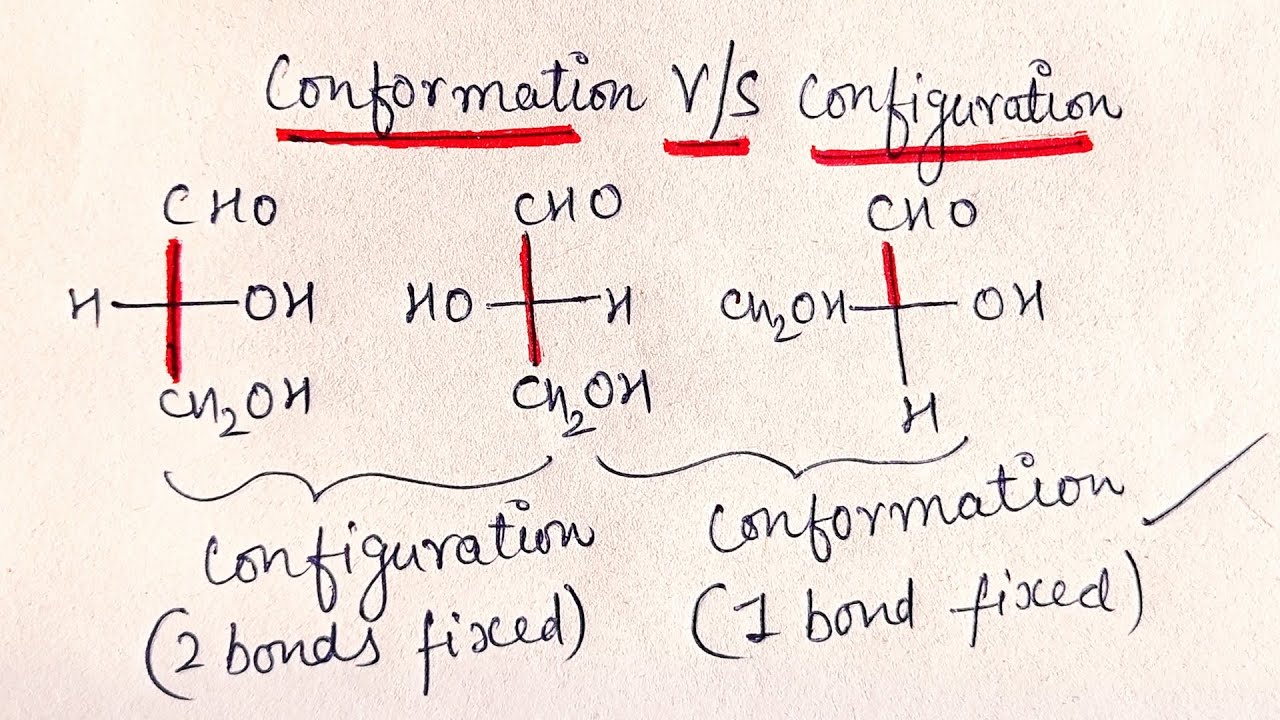 Conformation V/S Configuration
CHO CHO CHO
H OH HO H CH₂OH OH
CH₂OH CH₂OH H
Configuration Conformation
(2 bonds fixed) (1 bond fixed)